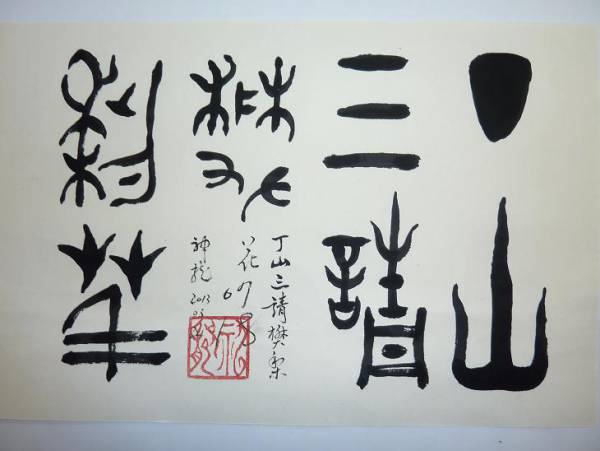 丁山
三請
樊
梨花
丁山三請樊梨
花
神龍 2013